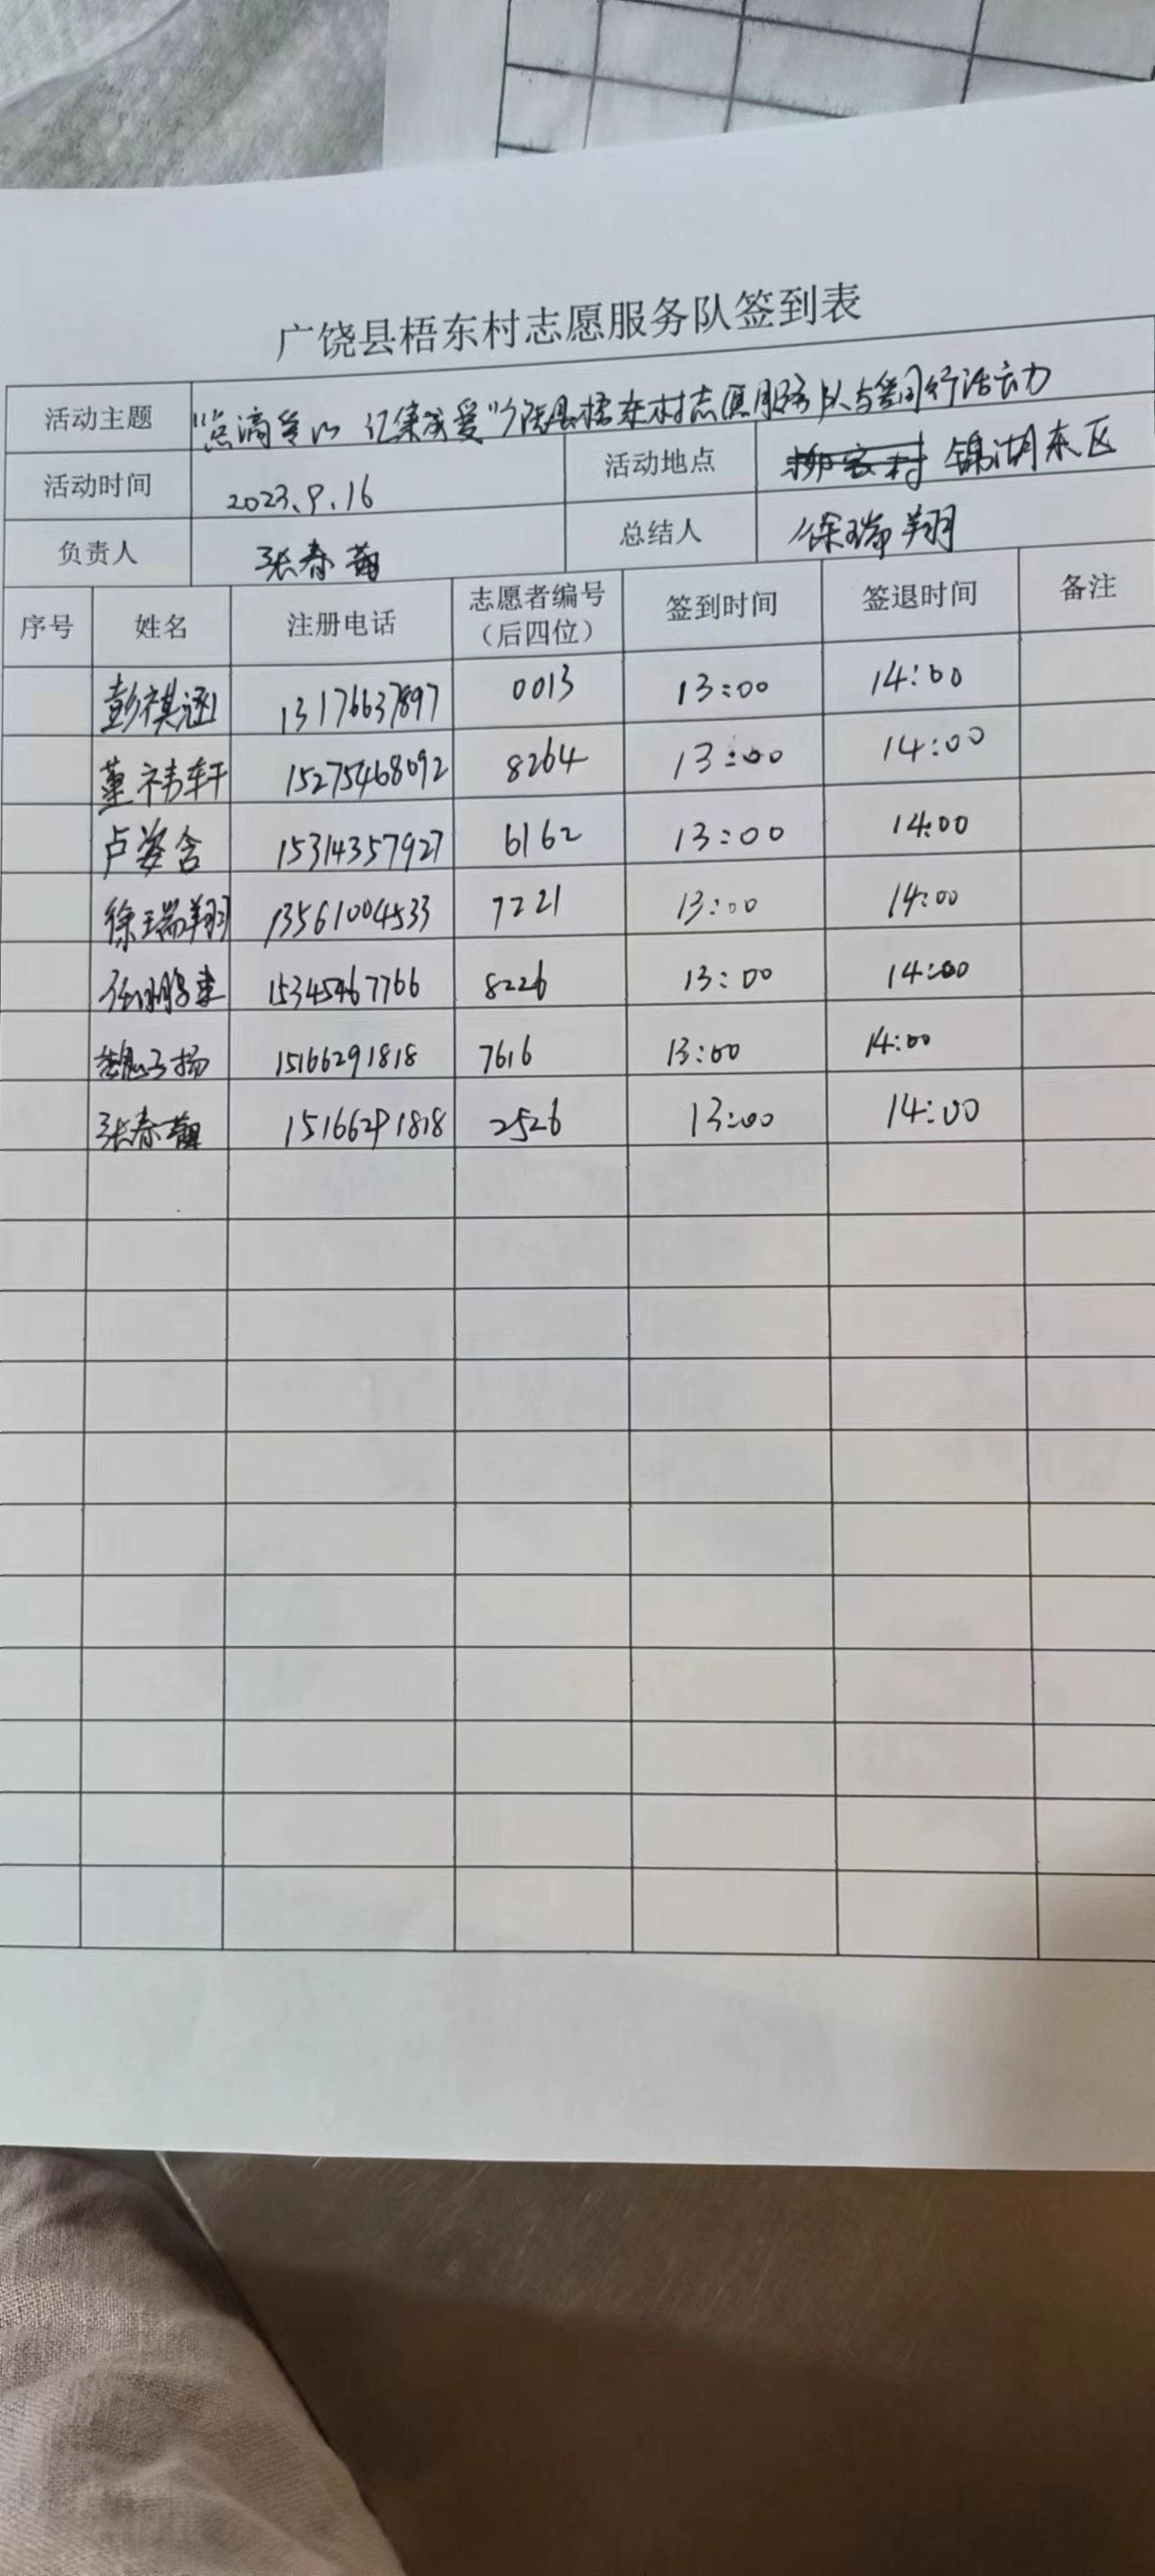 广饶县梧东村志愿服务队签到表
活动主题 "点滴 汇集成爱"广饶县梧东村志愿服务队与爱同行活动
活动时间 2023.9.16 活动地点 锦湖东区
负责人 张春 总结人 徐瑞翔
序号 姓名 注册电话 志愿者编号（后四位） 签到时间 签退时间 备注
彭祺涵 13176637897 0013 13:00 14:00
董祎轩 15275468092 8264 13:00 14:00
卢姿含 15314357927 6162 13:00 14:00
徐瑞翔 13561004533 7221 13:00 14:00
任 15345467766 8226 13:00 14:00
魏子扬 15166291818 7616 13:00 14:00
张春 15166291818 2526 13:00 14:00